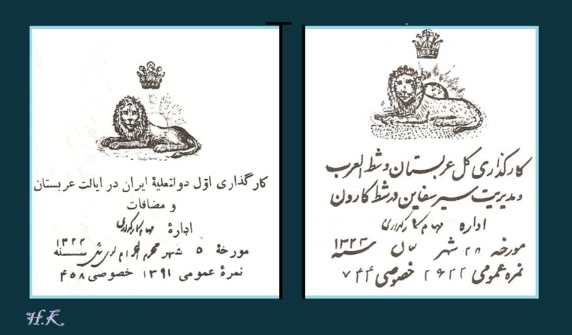 کارگذاری اوّل دولتعلیهٔ ایران در ایالت عربستان
و مضافات
ادارهٔ
مورخهٔ ۵ شهر محرم الحرام سنه ۱۳۲۴
نمرهٔ عمومی ۱۳۹۱ خصوصی ۴۵۸
کارگذاری کل عربستان و شط العرب
و مدیریت سیر سفاین در شط کارون
اداره
مورخه شهر سنه ۱۳۲۳
نمره عمومی ۲۶۲۲ خصوصی ۷۴۴
H.K.